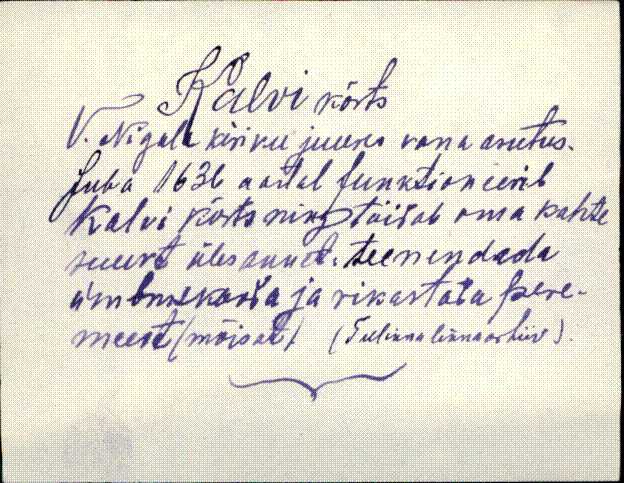 Kalvi kõrts
V. Nigula kiriku juures vana asutus.
Juba 1636 aastal funktsioneerib
Kalvi kõrts ning täidab oma kahte
suurt ülesannet: teenendada
ümbruskonda ja rikastada pere-
meest (mõisat) (Tallinna linnaarhiiv).